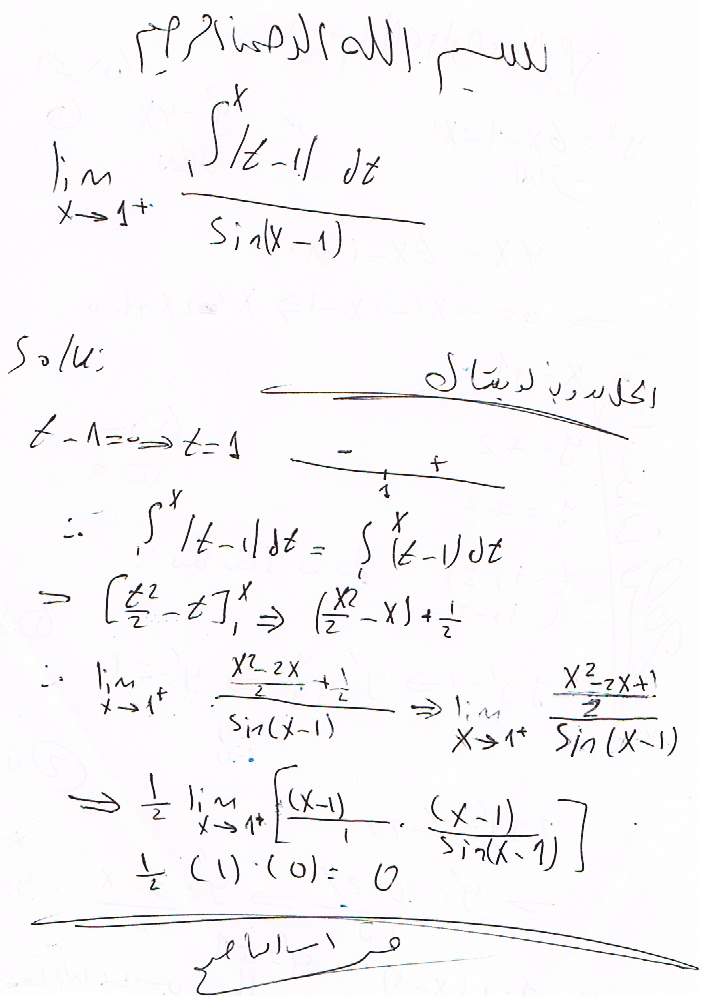 بسم الله الرحمن الرحيم
lim x→1⁺ ∫₁ˣ |t-1| dt / Sin(x-1)
Solu:
الحل بدون لوبيتال
t-1=0 ⇒ t=1
- +
1
∴ ∫₁ˣ |t-1| dt = ∫₁ˣ (t-1) dt
⇒ [t²/2 - t]₁ˣ ⇒ (x²/2 - x) + 1/2
∴ lim x→1⁺ ((x²-2x)/2 + 1/2) / Sin(x-1) ⇒ lim x→1⁺ ((x²-2x+1)/2) / Sin(x-1)
⇒ 1/2 lim x→1⁺ [(x-1)/1 · (x-1)/Sin(x-1)]
1/2 · (1) · (0) = 0